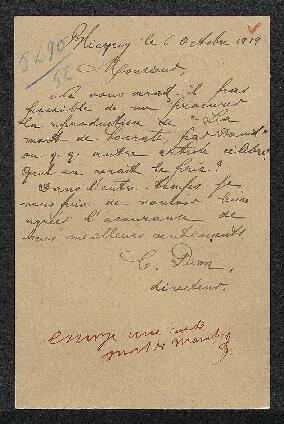 5290
52
le 6 Octobre 1919
Monsieur,
Ne vous serait-il pas
possible de me procurer
la reproduction de "La
mort de Socrate, par David"
ou q.q. autre artiste célèbre?
Quel en serait le prix?
Dans l'entre-temps je
vous prie de vouloir bien
agréer l'assurance de
mes meilleurs sentiments.
directeur.
envoyé une carte